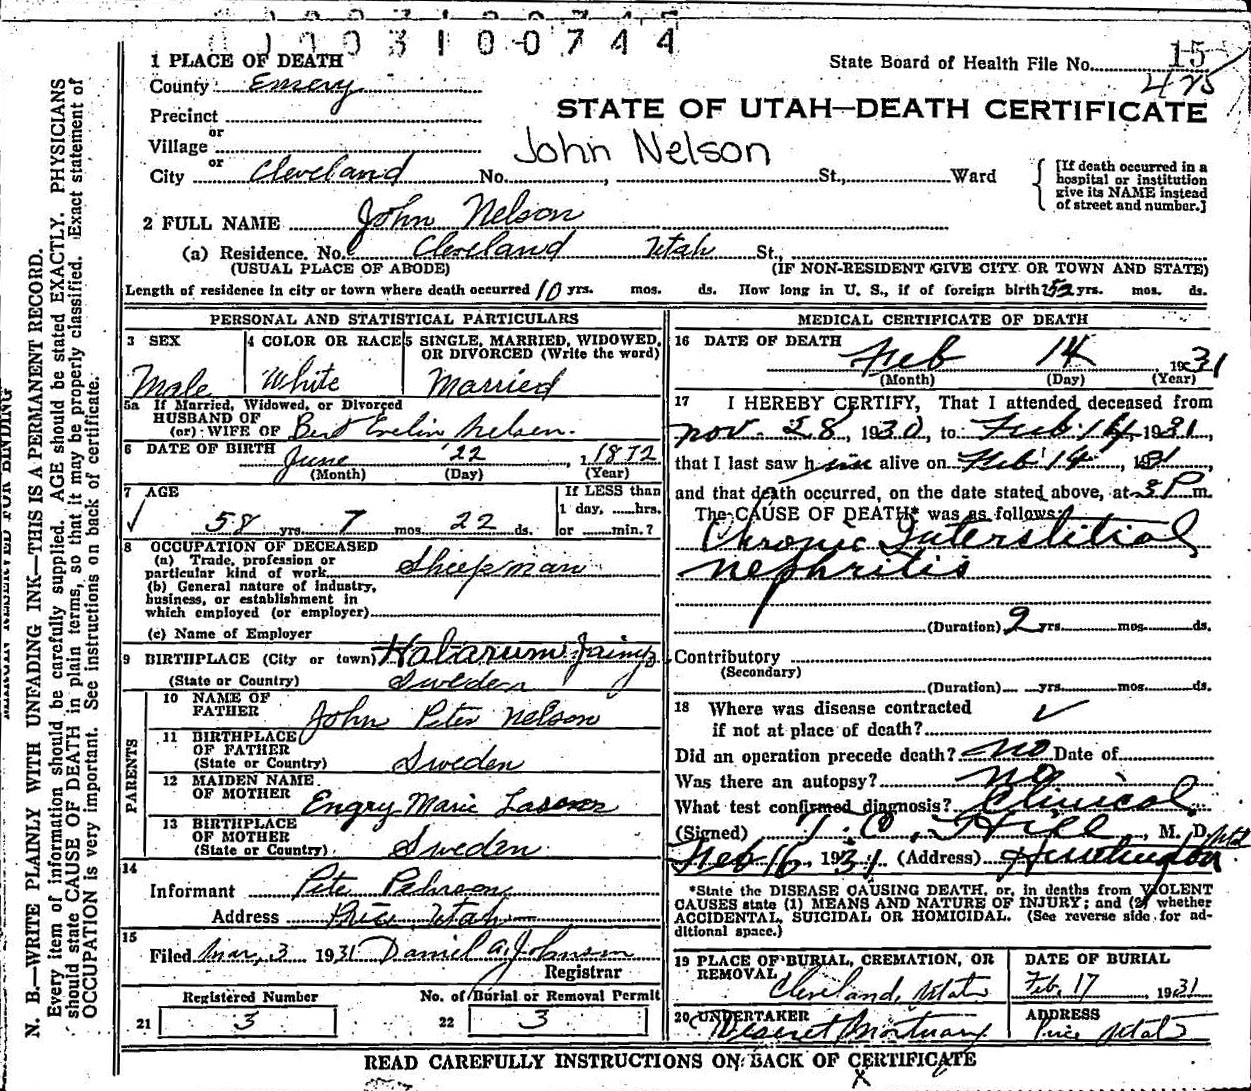 0 0 0 3 1 0 0 7 4 4
1 PLACE OF DEATH
State Board of Health File No. 15
475
County Emery
STATE OF UTAH—DEATH CERTIFICATE
Precinct
or
Village
John Nelson
or
City Cleveland No. , St., Ward
[If death occurred in a
hospital or institution
give its NAME instead
of street and number.]
2 FULL NAME John Nelson
(a) Residence. No. Cleveland Utah St.,
(USUAL PLACE OF ABODE) (IF NON-RESIDENT GIVE CITY OR TOWN AND STATE)
Length of residence in city or town where death occurred 10 yrs. mos. ds. How long in U. S., if of foreign birth? 52 yrs. mos. ds.
PERSONAL AND STATISTICAL PARTICULARS
3 SEX
Male
4 COLOR OR RACE
White
5 SINGLE, MARRIED, WIDOWED,
OR DIVORCED (Write the word)
Married
5a If Married, Widowed, or Divorced
HUSBAND OF
(or) WIFE OF Bert Evelin Nelsen.
6 DATE OF BIRTH June 22 , 1 1872
(Month) (Day) (Year)
7 AGE
58 yrs. 7 mos. 22 ds.
If LESS than
1 day, ......hrs.
or ......min.?
8 OCCUPATION OF DECEASED
(a) Trade, profession or
particular kind of work Sheepman
(b) General nature of industry,
business, or establishment in
which employed (or employer)
(c) Name of Employer
9 BIRTHPLACE (City or town)
(State or Country) Sweden
PARENTS
10 NAME OF
FATHER John Peter Nelson
11 BIRTHPLACE
OF FATHER
(State or Country) Sweden
12 MAIDEN NAME
OF MOTHER Engry Marie
13 BIRTHPLACE
OF MOTHER
(State or Country) Sweden
14
Informant Pete
Address Price Utah
15
Filed Mar. 3 1931 Daniel A. Johnson
Registrar
Registered Number
21 3
No. of Burial or Removal Permit
22 3
MEDICAL CERTIFICATE OF DEATH
16 DATE OF DEATH
Feb 14 1931
(Month) (Day) (Year)
17 I HEREBY CERTIFY, That I attended deceased from
Nov. 28, 1930, to Feb. 14, 1931,
that I last saw him alive on Feb 14, 1931,
and that death occurred, on the date stated above, at 3 P m.
The CAUSE OF DEATH* was as follows:
Chronic Interstitial
Nephritis
(Duration) 2 yrs. mos. ds.
Contributory
(Secondary)
(Duration) yrs. mos. ds.
18 Where was disease contracted
if not at place of death?
Did an operation precede death? No Date of
Was there an autopsy? no
What test confirmed diagnosis? Clinical
(Signed) T. C. Hill, M. D.
Feb 16 1931 (Address) Huntington
*State the DISEASE CAUSING DEATH, or, in deaths from VIOLENT
CAUSES state (1) MEANS AND NATURE OF INJURY; and (2) whether
ACCIDENTAL, SUICIDAL OR HOMICIDAL. (See reverse side for ad-
ditional space.)
19 PLACE OF BURIAL, CREMATION, OR
REMOVAL
Cleveland, Utah
DATE OF BURIAL
Feb, 17 , 1931
20 UNDERTAKER
Deseret Mortuary
ADDRESS
Price Utah
READ CAREFULLY INSTRUCTIONS ON BACK OF CERTIFICATE
N. B.—WRITE PLAINLY WITH UNFADING INK—THIS IS A PERMANENT RECORD.
Every item of information should be carefully supplied. AGE should be stated EXACTLY. PHYSICIANS
should state CAUSE OF DEATH in plain terms, so that it may be properly classified. Exact statement of
OCCUPATION is very important. See instructions on back of certificate.